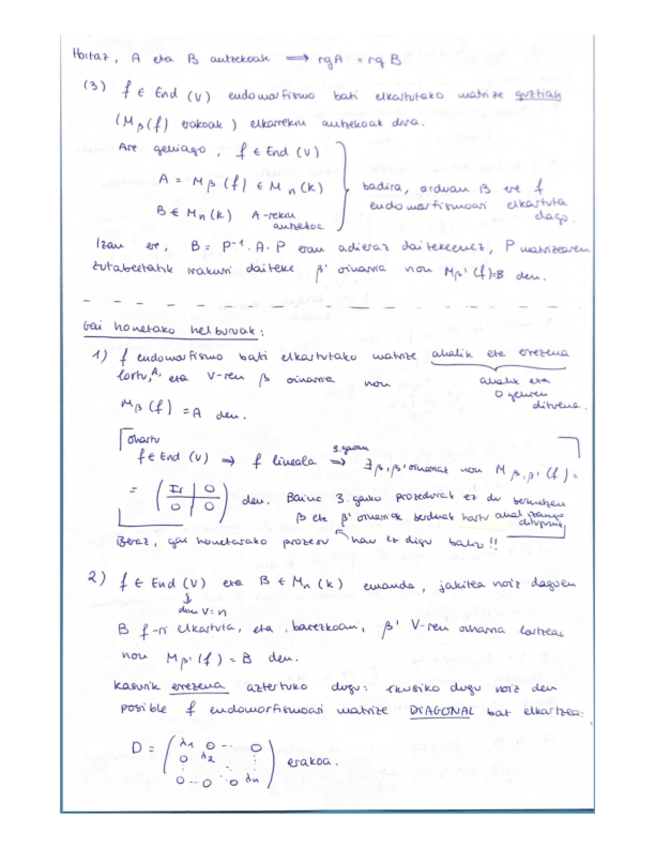 Hortaz, A eta B antzekoak ⟹ rg A = rg B
(3) f ∈ End (V) endomorfismo bati elkartutako matrize guztiak
(Mβ(f) erakoak) elkarrekin antzekoak dira.
Are gehiago, f ∈ End (V)
A = Mβ(f) ∈ Mn(k)
B ∈ Mn(k) A-rekin antzekoa
badira, orduan B ere f
endomorfismoari elkartuta
dago.
Izan ere, B = P⁻¹·A·P eran adieraz daitekeenez, P matrizearen
zutabeetatik irakurri daiteke β' oinarria non Mβ'(f)=B den.
Gai honetako helburuak:
1) f endomorfismo bati elkartutako matrize ahalik eta errezena
lortu, A, eta V-ren β oinarria non
ahalik eta
0 gehien
dituena.
Mβ(f) = A den.
Oharra
f ∈ End (V) ⟹ f lineala ⟹ ∃β,β' oinarriak non Mβ,β'(f) =
3. gaian
= (Ir | 0 / 0 | 0) den. Baina 3. gaiko prozedurak ez du bermatzen
β eta β' oinarriak berdinak hartu ahal izango
ditugunik
Beraz, gai honetarako prozesu hau ez digu balio!!
2) f ∈ End (V) eta B ∈ Mn(k) emanda, jakitea noiz dagoen
dim V = n
B f-ri elkartuta, eta, baiezkoan, β' V-ren oinarria lortzea
non Mβ'(f) = B den.
Kasurik errezena aztertuko dugu: ikusiko dugu noiz den
posible f endomorfismoari matrize DIAGONAL bat elkartzea:
D = (λ1 0 ... 0
0 λ2 ⋮
0 ... 0 λn) erakoa.